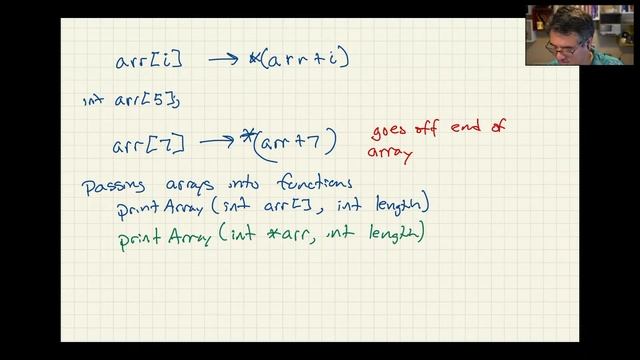 arr[i] → *(arr+i)
int arr[5];
arr[7] → *(arr+7)
goes off end of
array
Passing arrays into functions
printArray(int arr[], int length)
printArray(int *arr, int length)